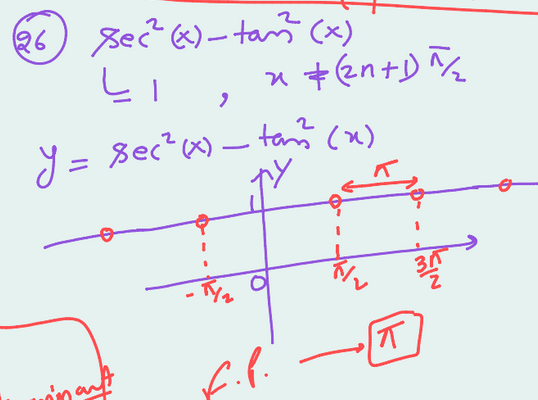 26 sec²(x) - tan²(x)
↳ 1 , x ≠ (2n+1) π/2
y = sec²(x) - tan²(x)
Y
π
1
0
- π/2
π/2
3π/2
π
F.P.